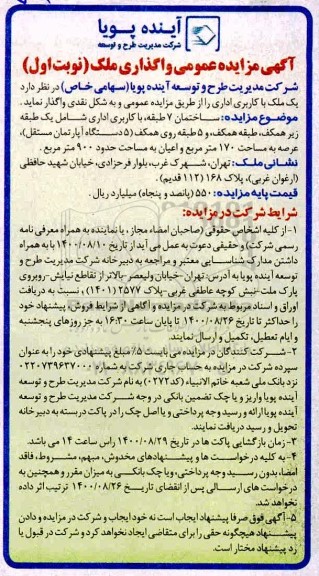 آینده پویا
شرکت مدیریت طرح و توسعه
آگهی مزایده عمومی واگذاری ملک (نوبت اول)
شرکت مدیریت طرح و توسعه آینده پویا (سهامی خاص) در نظر دارد
یک ملک با کاربری اداری را از طریق مزایده عمومی و به شکل نقدی واگذار نماید.
موضوع مزایده: ساختمان ۷ طبقه، با کاربری اداری شامل یک طبقه
زیر همکف، طبقه همکف، و ۵ طبقه روی همکف (۵ دستگاه آپارتمان مستقل)،
عرصه به مساحت ۱۷۰ متر مربع و اعیان به مساحت حدود ۹۰۰ متر مربع.
نشانی ملک: تهران، شهرک غرب، بلوار فرحزادی، خیابان شهید حافظی
(ارغوان غربی)، پلاک ۱۶۸ (۱۱۲ قدیم).
قیمت پایه مزایده: ۵۵۰ (پانصد و پنجاه) میلیارد ریال.
شرایط شرکت در مزایده:
۱- از کلیه اشخاص حقوقی (صاحبان امضاء مجاز، یا نماینده به همراه معرفی نامه
رسمی شرکت) و حقیقی دعوت به عمل می آید از تاریخ ۱۴۰۰/۰۸/۱۰ با به همراه
داشتن مدارک شناسایی معتبر و مراجعه به دبیرخانه شرکت مدیریت طرح و
توسعه آینده پویا به آدرس: تهران-خیابان ولیعصر-بالاتر از تقاطع نیایش-روبروی
پارک ملت-نبش کوچه عاطفی غربی-پلاک ۲۵۷۷ (۱۴۰۱)، نسبت به دریافت
اوراق و اسناد مربوط به شرکت در مزایده و آگاهی از شرایط فروش، پیشنهاد خود
را حداکثر تا تاریخ ۱۴۰۰/۰۸/۲۶ تا پایان ساعت ۱۶:۳۰ به جز روزهای پنجشنبه
و ایام تعطیل، تکمیل و ارسال نمایند.
۲- شرکت کنندگان در مزایده می بایست ۵٪ مبلغ پیشنهادی خود را به عنوان
سپرده شرکت در مزایده به حساب جاری شرکت به شماره ۰۲۲۰۷۳۹۶۳۷۰۰۰
نزد بانک ملی شعبه خاتم الانبیاء (کد ۰۲۷۲) به نام شرکت مدیریت طرح و توسعه
آینده پویا واریز و یا چک تضمین بانکی در وجه شرکت مدیریت طرح و توسعه
آینده پویا ارائه و رسید وجه پرداختی و یا اصل چک را در پاکت دربسته به دبیرخانه
تحویل و رسید دریافت نمایند.
۳- زمان بازگشایی پاکت ها در تاریخ ۱۴۰۰/۰۸/۲۹ راس ساعت ۱۴ می باشد.
۴- به کلیه درخواست ها و پیشنهادهای مخدوش، مبهم، مشروط، فاقد
امضا، بدون رسید وجه پرداختی، و یا چک بانکی به میزان مقرر و همچنین به
درخواست های ارسالی پس از انقضای تاریخ ۱۴۰۰/۰۸/۲۶ ترتیب اثر داده
نخواهد شد.
۵- آگهی فوق صرفا پیشنهاد ایجاب است نه خود ایجاب و شرکت در مزایده و دادن
پیشنهاد هیچگونه حقی را برای متقاضی ایجاد نخواهد کرد و شرکت در قبول یا
رد پیشنهاد مختار است.